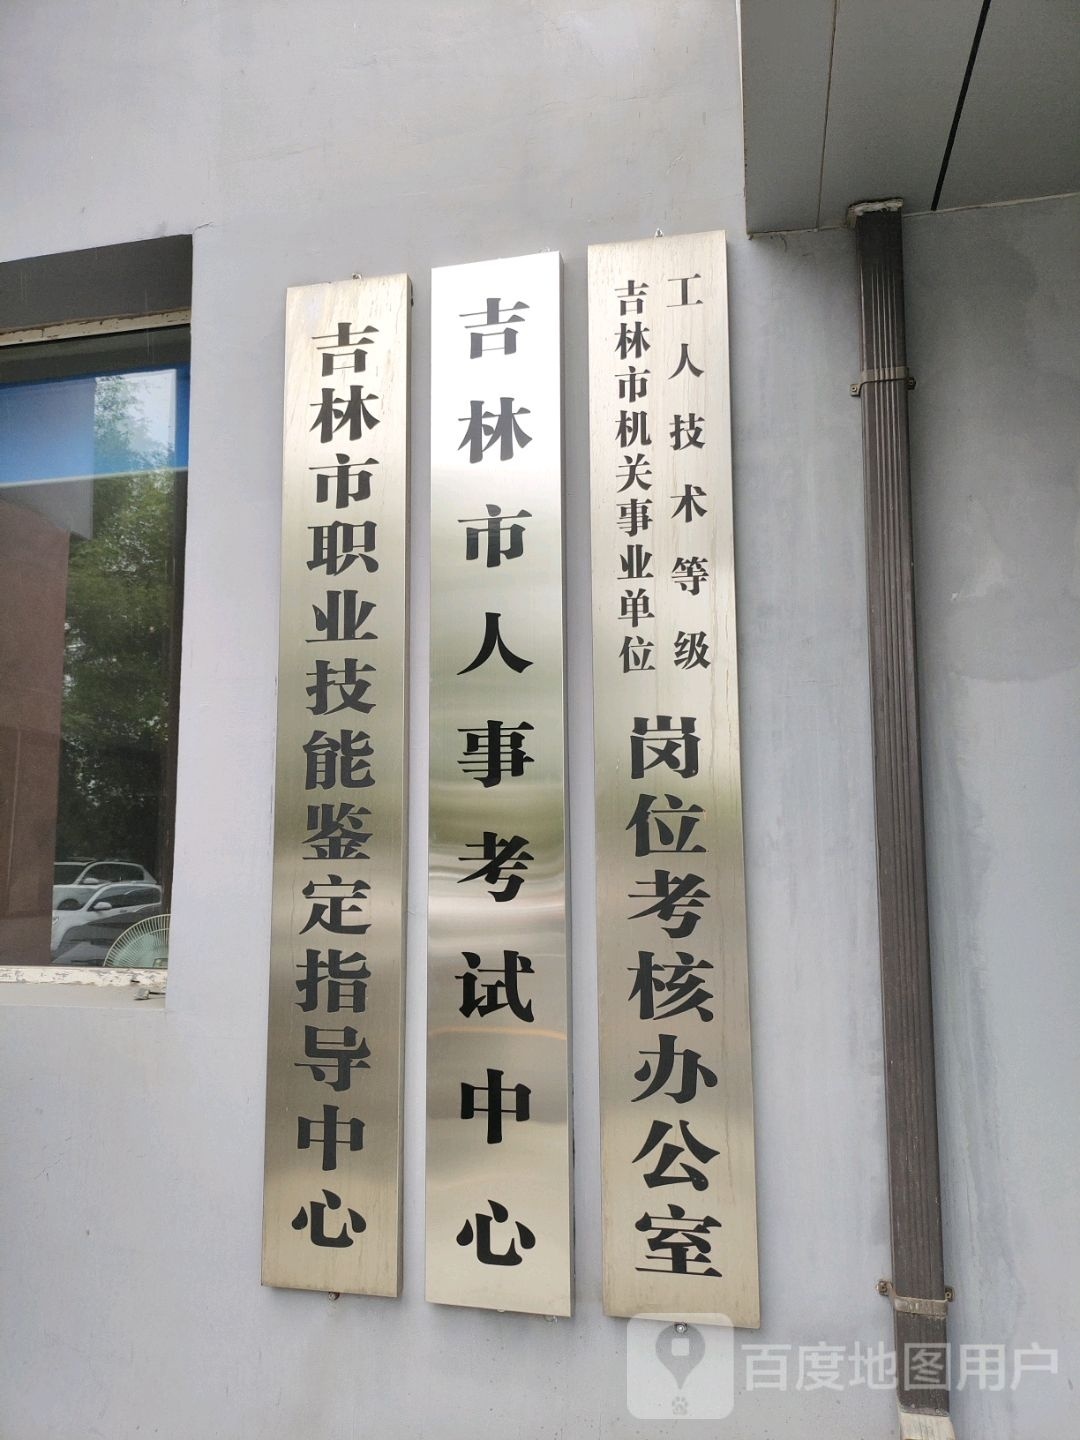 吉林市职业技能鉴定指导中心
吉林市人事考试中心
吉林市机关事业单位
工人技术等级
岗位考核办公室
百度地图用户